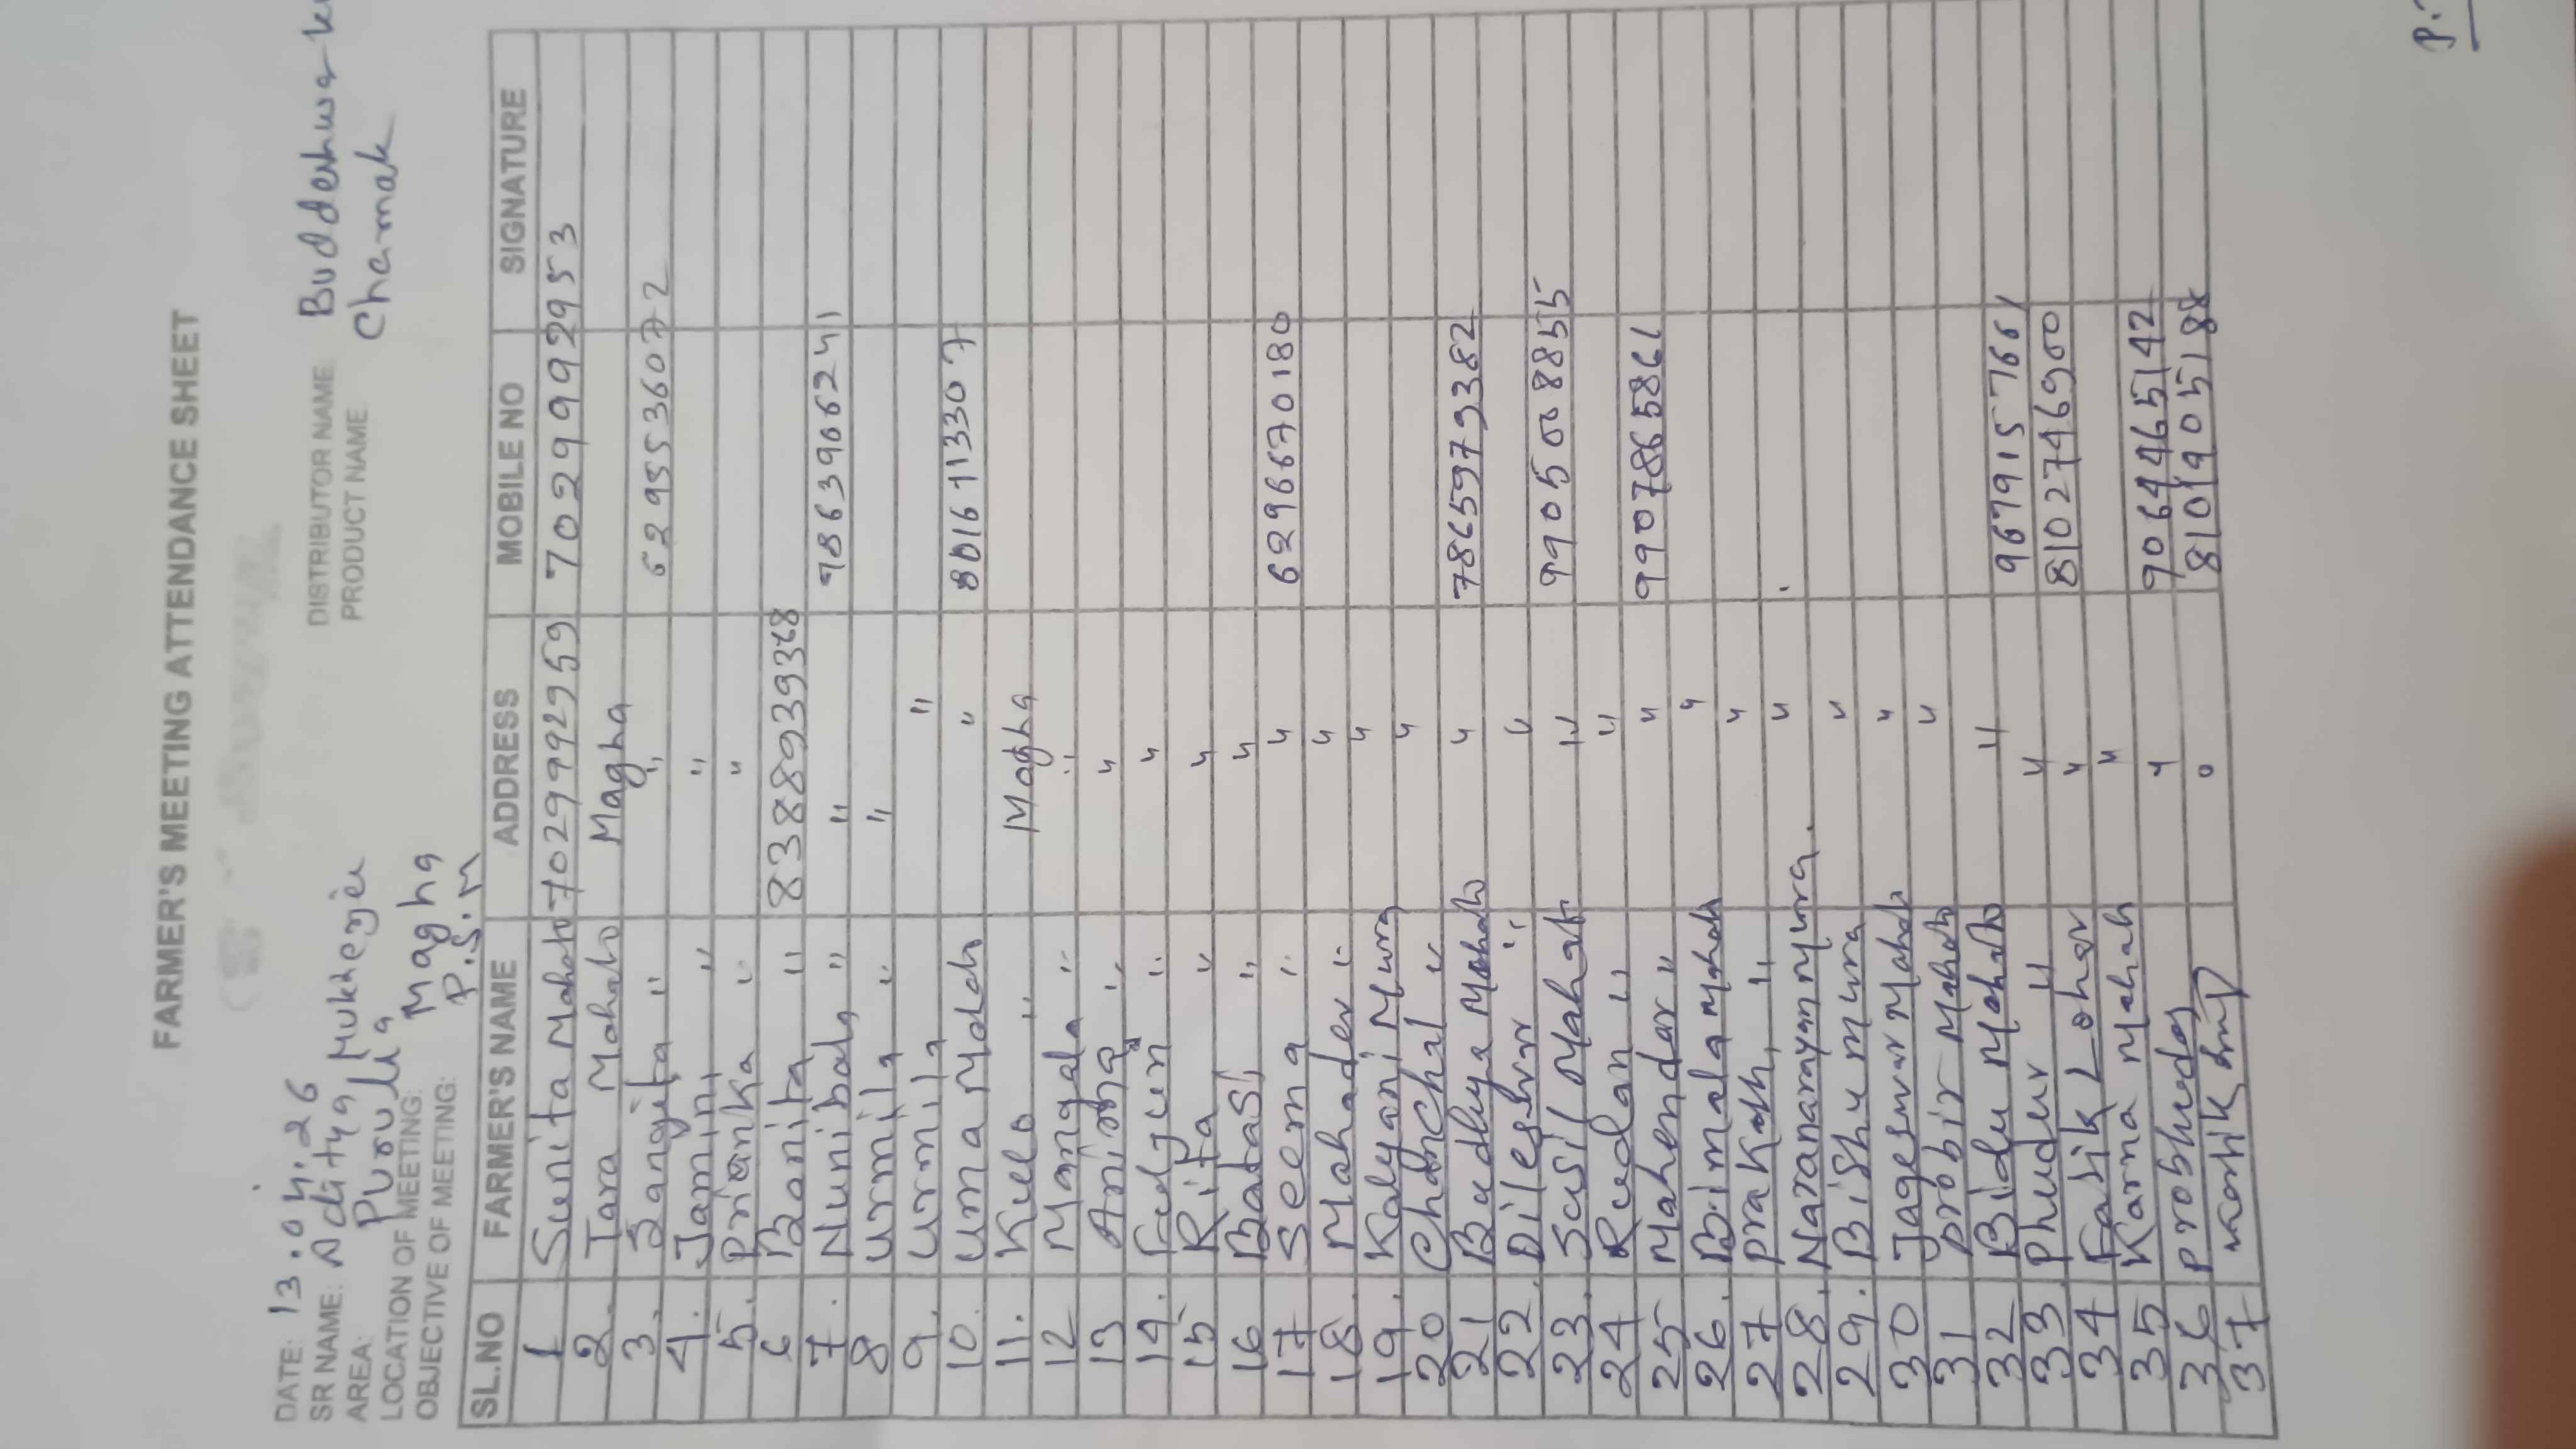 FARMER'S MEETING ATTENDANCE SHEET
DATE: 13.04.26
SR NAME: Aditya Mukherjee
AREA: Purulia
LOCATION OF MEETING: Magha
OBJECTIVE OF MEETING: P.S.M
DISTRIBUTOR NAME: Buddeshwar
PRODUCT NAME Chamak
SL.NO FARMER'S NAME ADDRESS MOBILE NO SIGNATURE
1 Sunita Mahato 7029992959 7029992953
2. Tara Mahato Magha
3. Sangita " " 6295536072
4. Jamini " "
5. Prianka " "
6 Banita " 8388939368
7. Nunibala " " 9863906241
8 Urmila " "
9. Urmila "
10. Uma Mahato " 8016113307
11. Kulo " Magha
12 Mangala " "
13 Anima " "
14. Fuljun " "
15 Rita " "
16 Batasi " "
17 Seema " " 6296670180
18. Mahadev " "
19. Kalyani Mura "
20 Chanchal " "
21 Budhya Mahato " 7865979382
22. Dileshwr " "
23. Susil Mahato " 9905008855
24 Rudan " "
25 Mahendar " " 9907865861
26. Bimala Mahato "
27 Prakash " "
28. Naranarayan Mura. "
29. Bishu Mura "
30 Jageswar Mahato "
31 Probir Mahato "
32 Bidu Mahato " 9679157661
33 Phudur " " 8102746900
34 Fasik Lohar "
35 Karna Mahato " 9064465142
36 Probhudas " 8101905188
37 Kartik